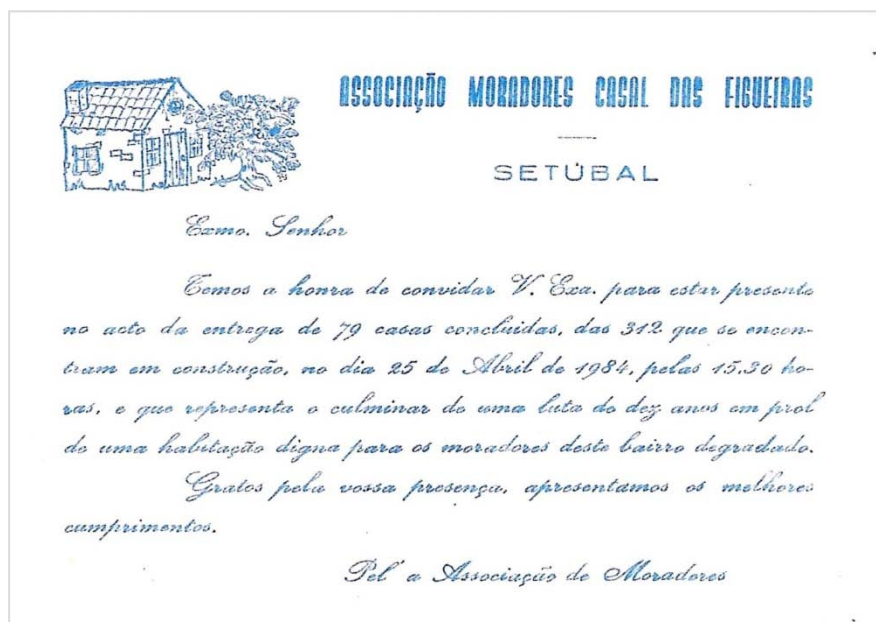 ASSOCIAÇÃO MORADORES CASAL DAS FIGUEIRAS
SETÚBAL
Exmo. Senhor
Temos a honra de convidar V. Exa. para estar presente
no acto da entrega de 79 casas concluidas, das 312 que se encon-
tram em construção, no dia 25 de Abril de 1984, pelas 15.30 ho-
ras, e que representa o culminar de uma luta de dez anos em prol
de uma habitação digna para os moradores deste bairro degradado.
Gratos pela vossa presença, apresentamos os melhores
cumprimentos.
Pel' a Associação de Moradores